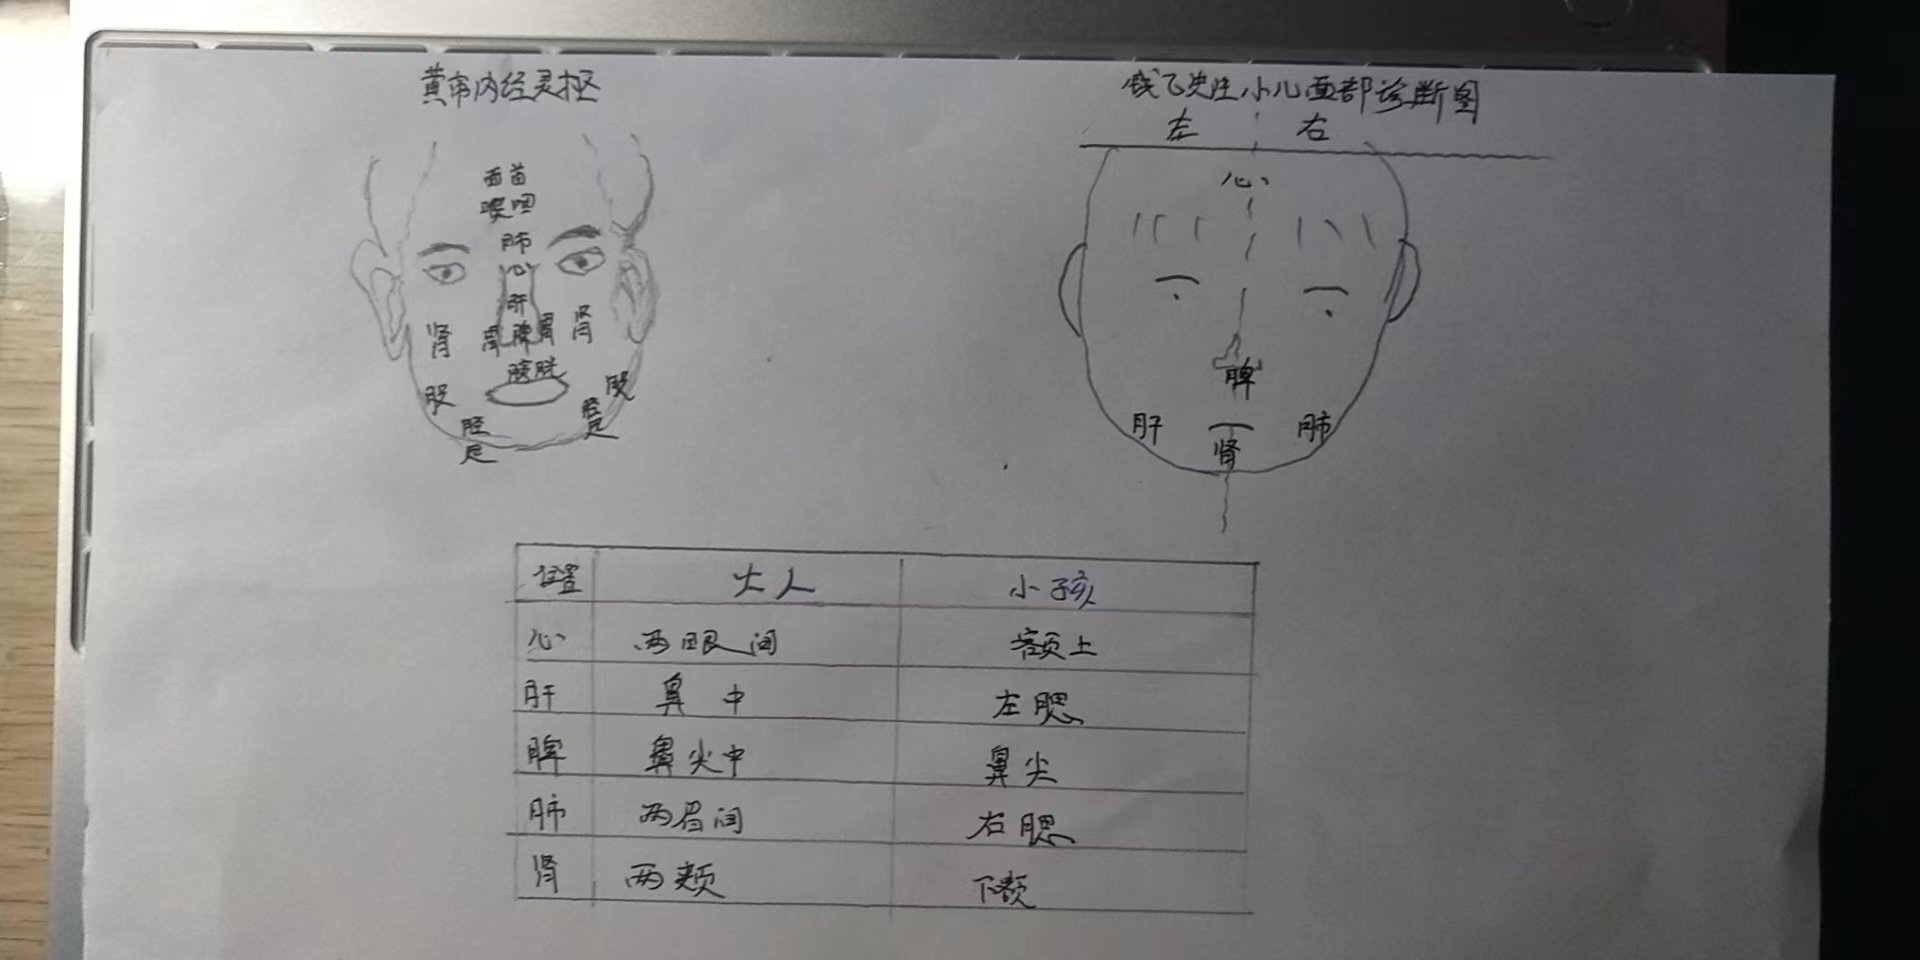 黄帝内经灵枢
面首
喉咽
肺
心
肝
肾 胃 脾 胃 肾
膀胱
股 股
胫 胫
足 足
钱乙先生小儿面部诊断图
左 右
心
脾
肝 肺
肾
位置 大人 小孩
心 两眼间 额上
肝 鼻中 左腮
脾 鼻尖中 鼻尖
肺 两眉间 右腮
肾 两颊 下颏